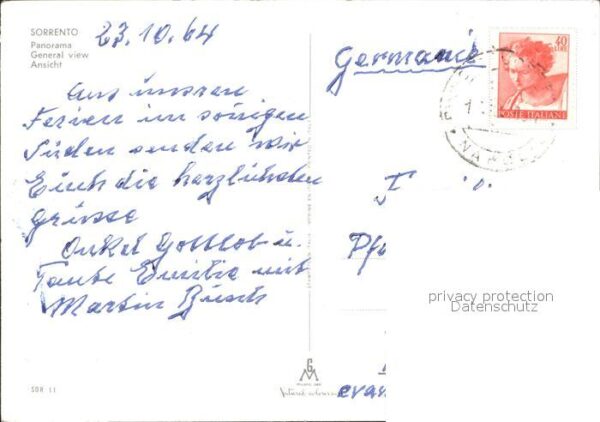 SORRENTO
Panorama
General view
Ansicht
23.10.64
Aus unseren
Ferien im sonigen
Süden senden wir
Euch die herzlichsten
Grüsse
Onkel Gottlob u.
Tante Emilie mit
Martin Busch
Germania
40
LIRE
POSTE ITALIANE
Pfu
privacy protection
Datenschutz
evan
SOR 11